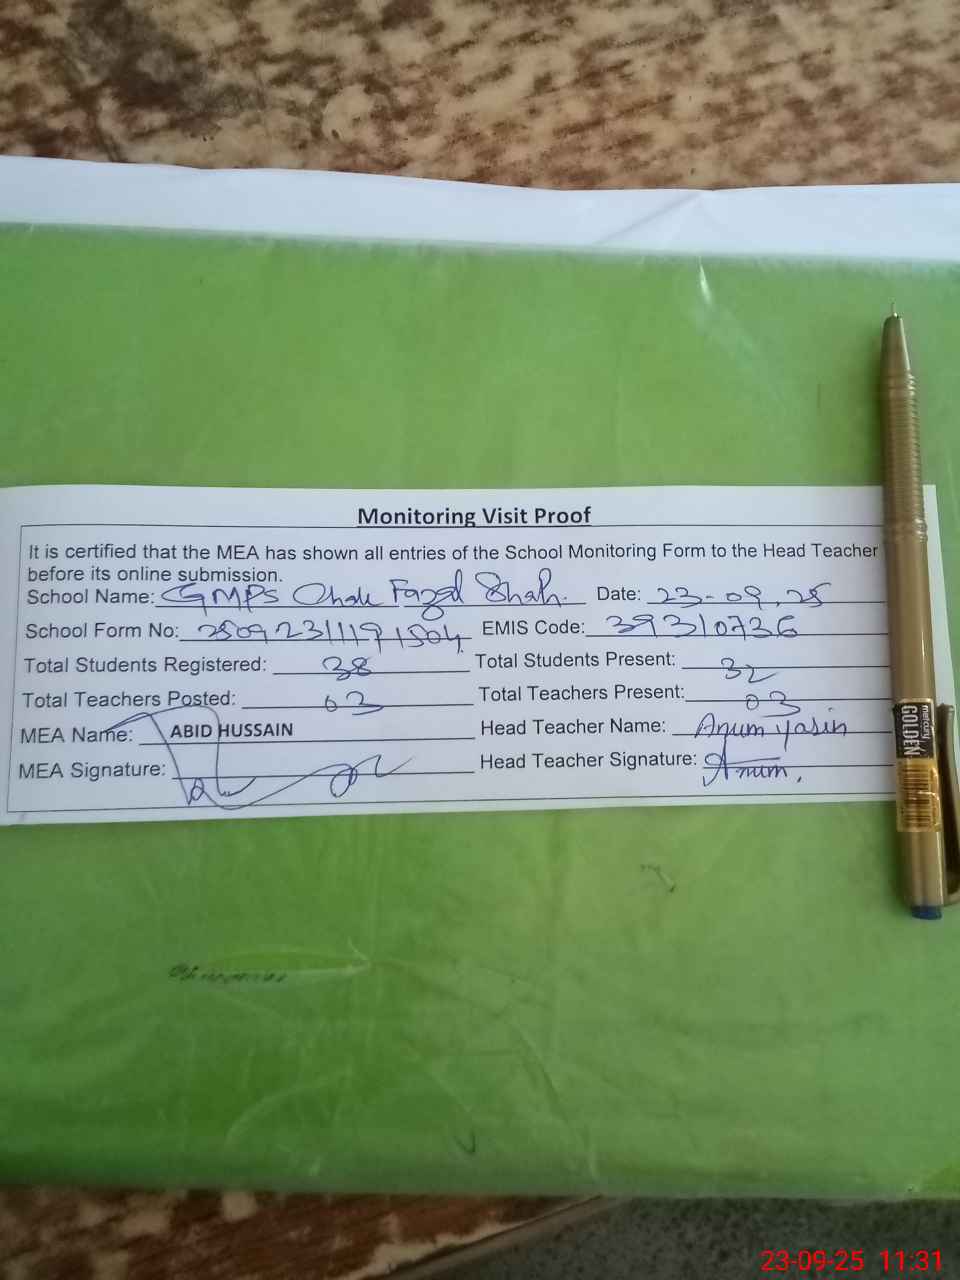 Monitoring Visit Proof
It is certified that the MEA has shown all entries of the School Monitoring Form to the Head Teacher
before its online submission.
School Name: GMPS Chak Fazal Shah. Date: 23-09.25
School Form No: 25092311191504 EMIS Code: 39310736
Total Students Registered: 38 Total Students Present: 32
Total Teachers Posted: 03 Total Teachers Present: 03
MEA Name: ABID HUSSAIN Head Teacher Name: Anum yasin
MEA Signature: Head Teacher Signature: Anum.
mercury
GOLDEN
23-09-25 11:31